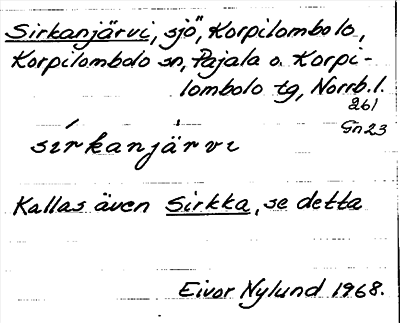 Sirkanjärvi, sjö, Korpilombolo,
Korpilombolo sn, Pajala o. Korpi-
lombolo tg, Norrb. l.
261
Gn23
sírkanjàrvi
Kallas även Sirkka, se detta
Eivor Nylund 1968.